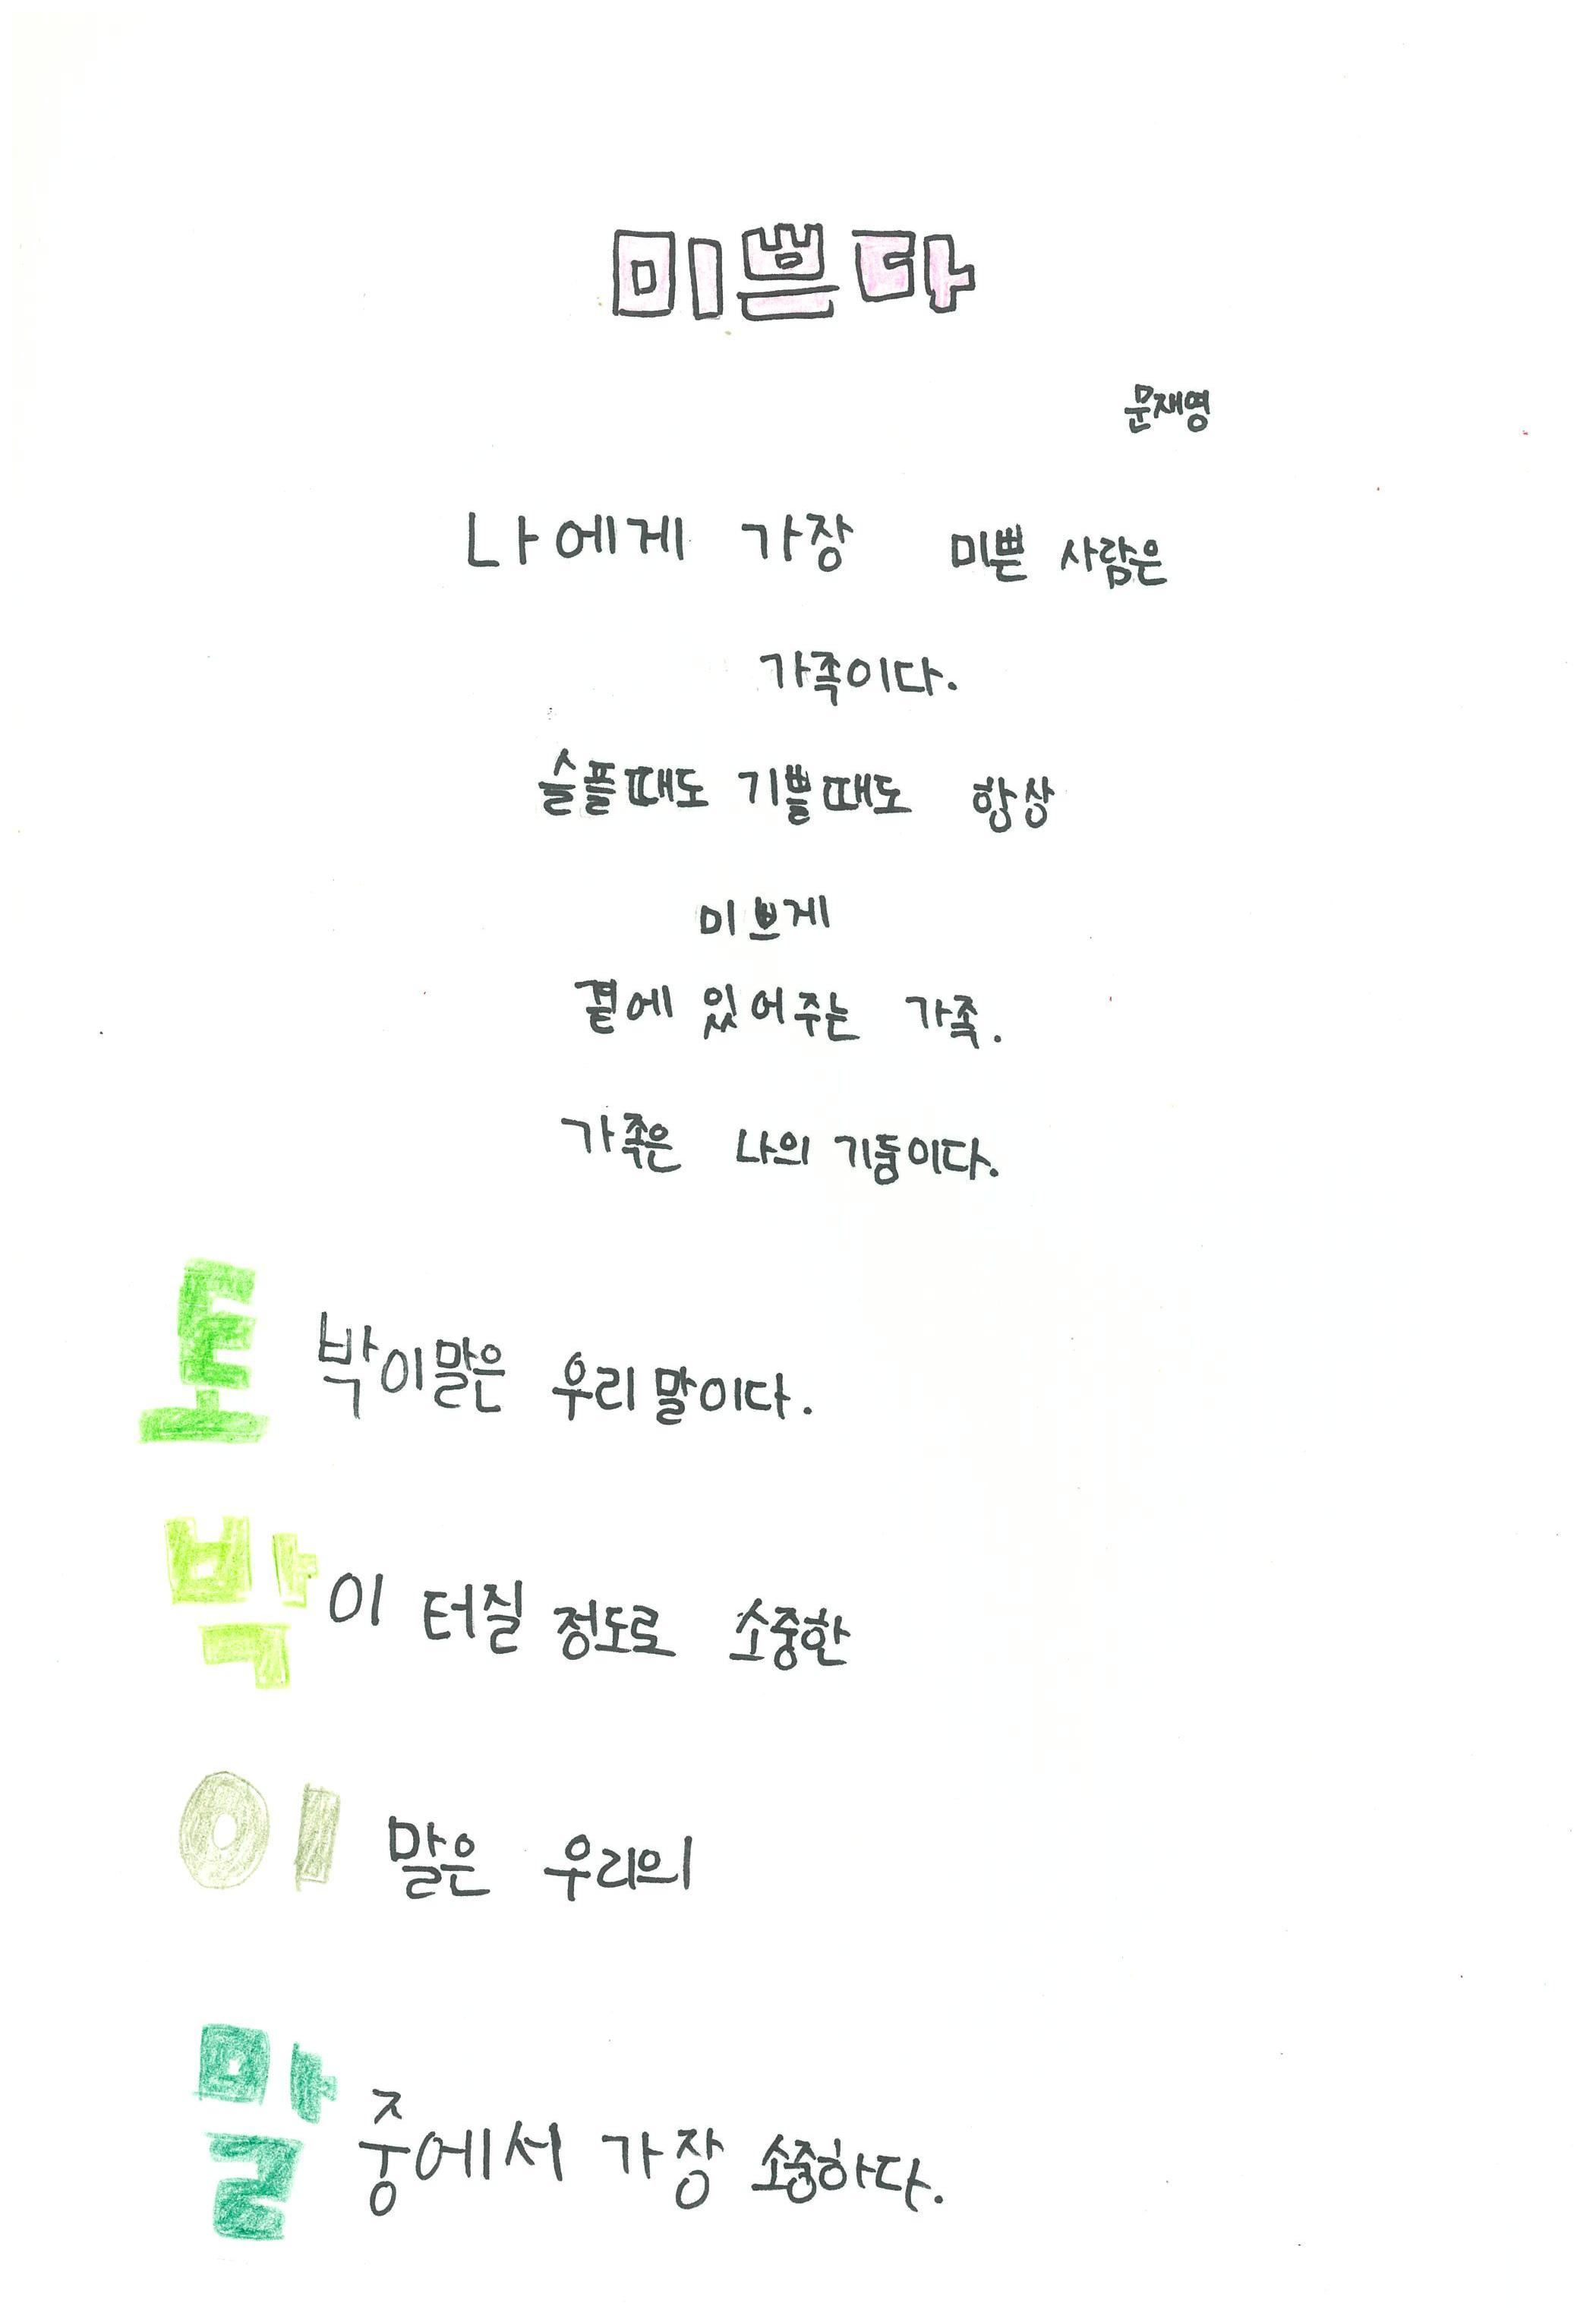 미쁘다
문재영
나에게 가장 미쁜 사람은
가족이다.
슬플때도 기쁠때도 항상
미쁘게
곁에 있어주는 가족.
가족은 나의 기둥이다.
토박이말은 우리말이다.
박이 터질 정도로 소중한
이 말은 우리의
말 중에서 가장 소중하다.